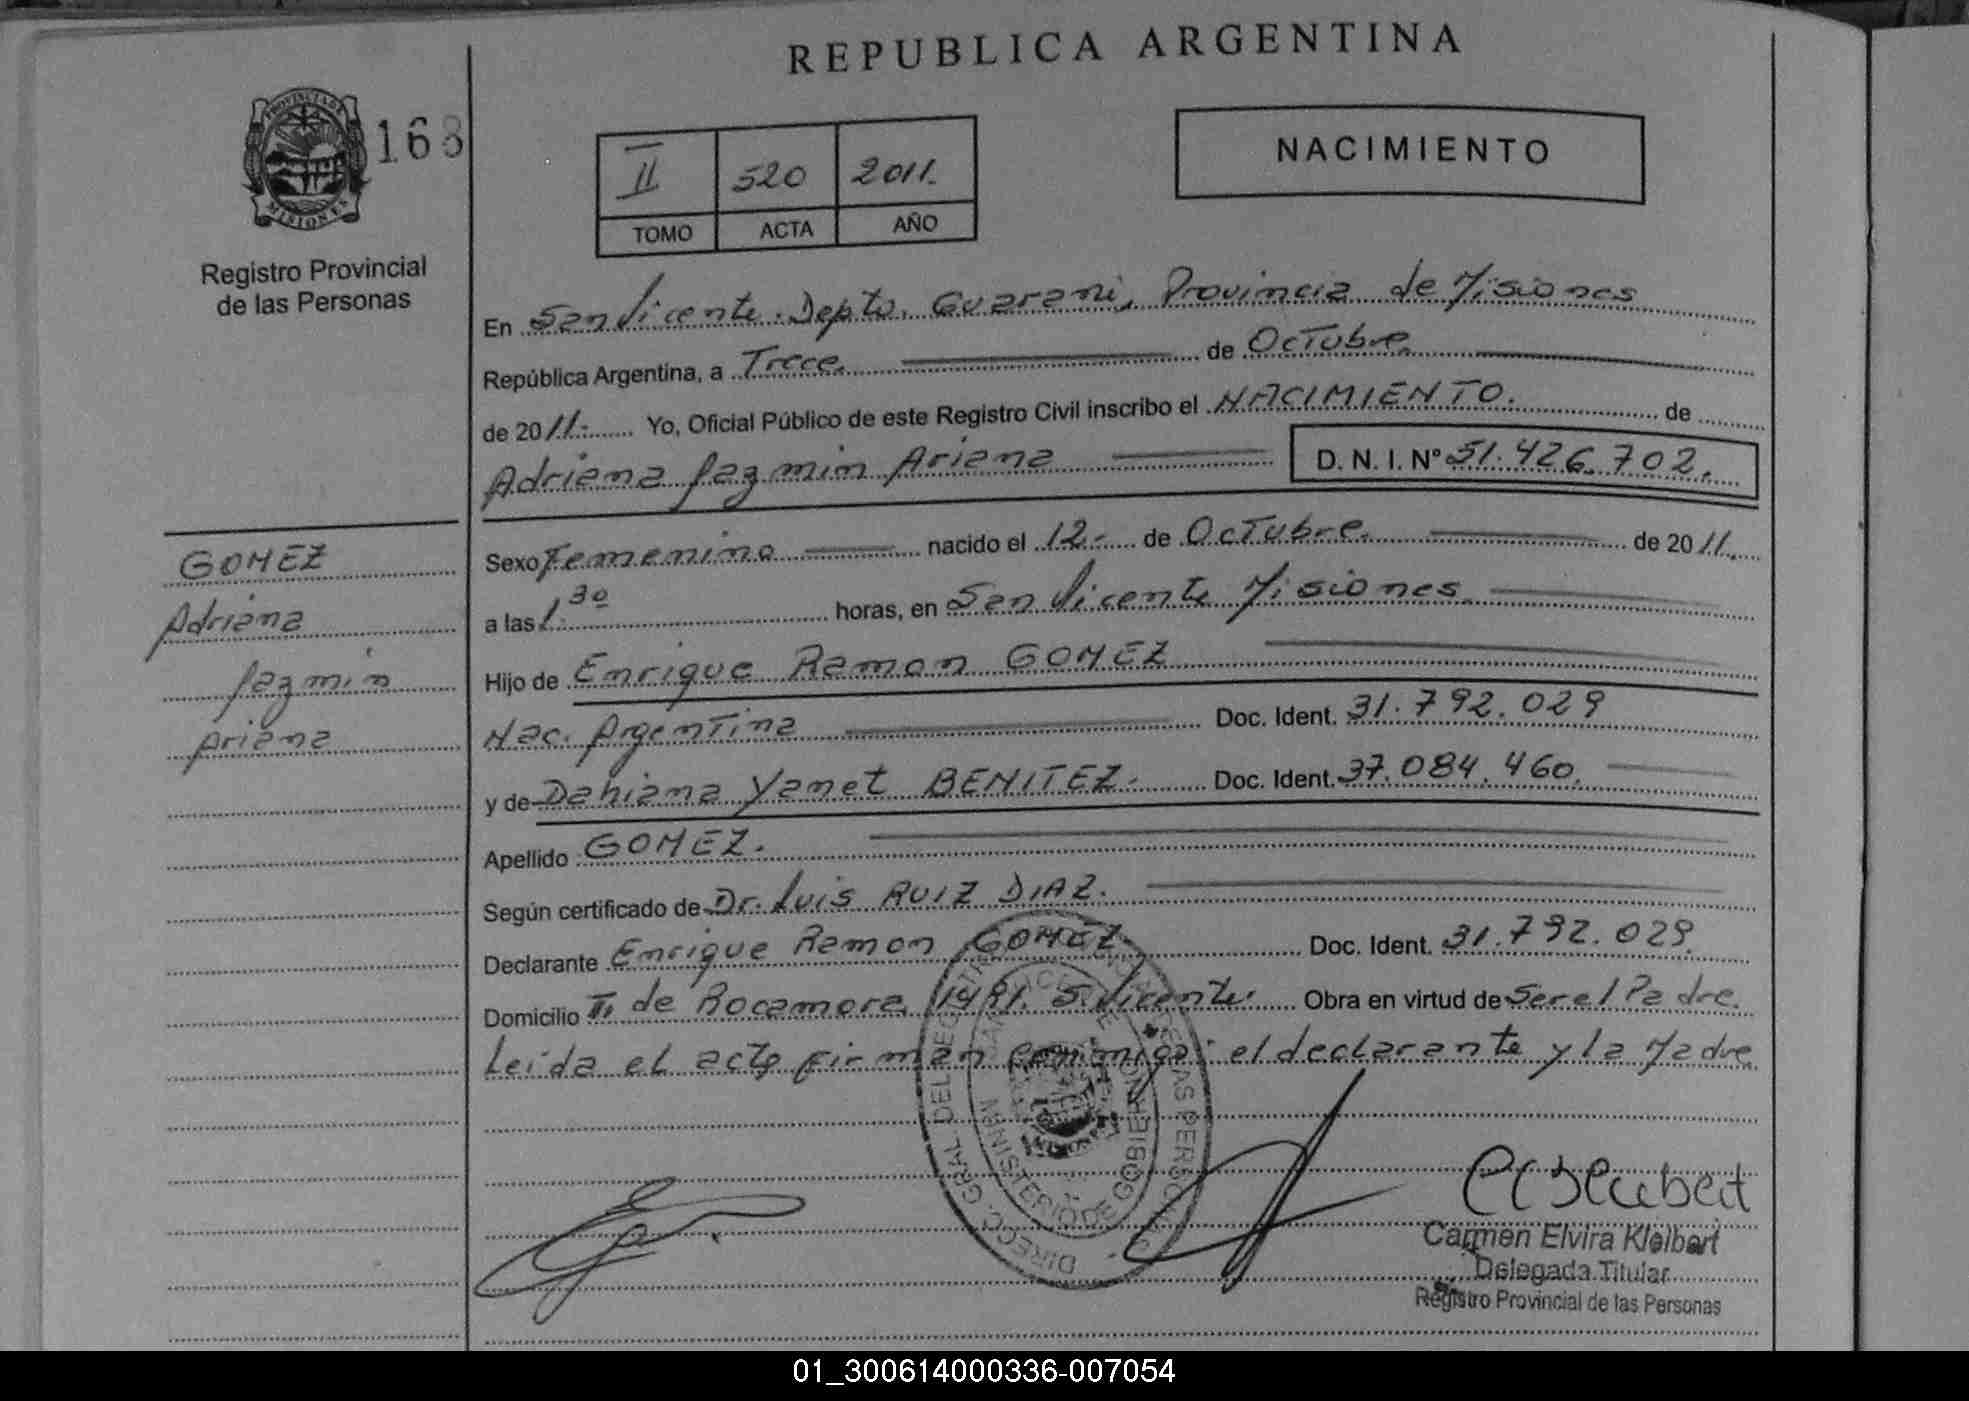 REPUBLICA ARGENTINA
PROVINCIA DE
MISIONES
168
Registro Provincial
de las Personas
II 520 2011.
TOMO ACTA AÑO
NACIMIENTO
En San Vicente. Depto. Guarani, Provincia de Misiones
República Argentina, a Trece. de Octubre.
de 2011.- Yo, Oficial Público de este Registro Civil inscribo el NACIMIENTO. de
Adriana Jazmin Ariana D. N. I. Nº 51.426.702.
GOMEZ
Adriana
Jazmin
Ariana
Sexo Femenino nacido el 12.- de Octubre. de 2011.
a las 1.30 horas, en San Vicente Misiones.
Hijo de Enrique Ramon GOMEZ
Nac. Argentina Doc. Ident. 31.792.029
y de Dahiana Yanet BENITEZ.- Doc. Ident. 37.084.460.
Apellido GOMEZ.
Según certificado de Dr. Luis RUIZ DIAZ.
Declarante Enrique Ramon GOMEZ Doc. Ident. 31.792.029.
Domicilio de Rocamora. 1491. S. Vicente. Obra en virtud de Ser el Padre.
Leida el acta firman conmigo: el declarante y la Madre
DIREC. GRAL. DEL REGISTRO PROVINCIAL DE LAS PERSONAS
MINISTERIO DE GOBIERNO
Carmen Elvira Kleibert
Delegada Titular
Registro Provincial de las Personas
01_300614000336-007054